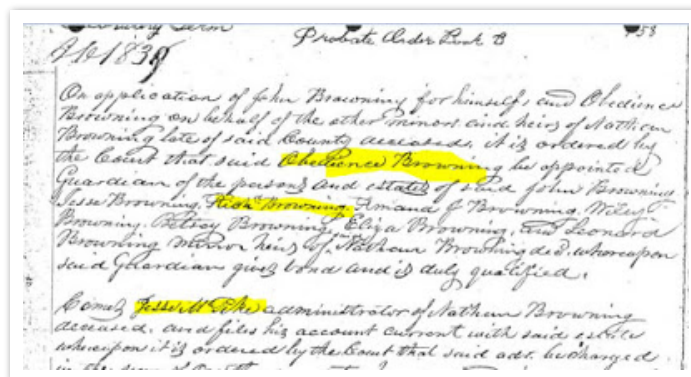 Term
Probate Order Book B
AD 1839
On application of John Browning for himself, and Obedience
Browning on behalf of the other minors and heirs of Nathan
Browning late of said County deceased, it is ordered by
the Court that said Obedience Browning be appointed
Guardian of the persons and estates of said John Browning
Jesse Browning, Browning, Browning, Wiley
Browning, Betsey Browning, Eliza Browning, and Leonard
Browning minor heirs of Nathan Browning decd. whereupon
said Guardian gives bond and is duly qualified.
Comes Jesse M Pike administrator of Nathan Browning
deceased, and files his account current with said estate
whereupon it is ordered by the Court that said adr. be charged
in the sum of